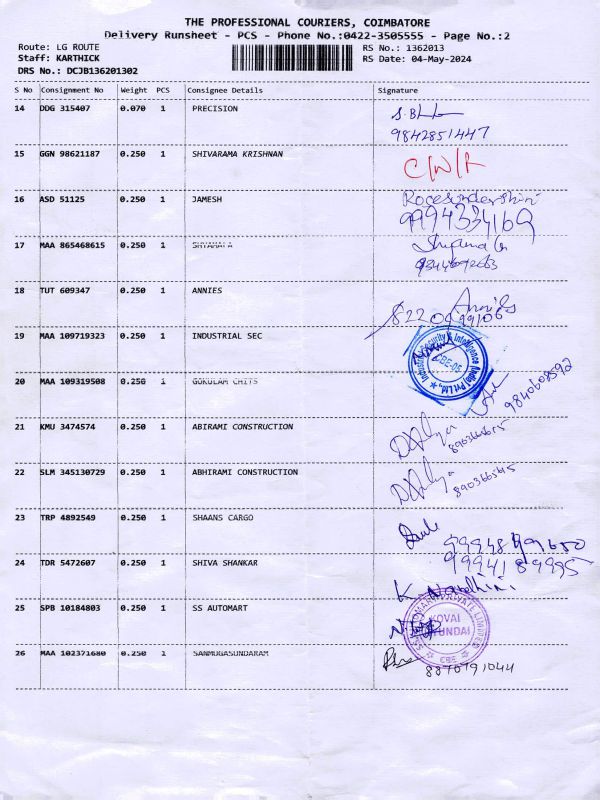 THE PROFESSIONAL COURIERS, COIMBATORE
Delivery Runsheet - PCS - Phone No.:0422-3505555 - Page No.:2
Route: LG ROUTE RS No.: 1362013
Staff: KARTHICK RS Date: 04-May-2024
DRS No.: DCJB136201302
S No Consignment No Weight PCS Consignee Details Signature
14 DDG 315407 0.070 1 PRECISION
9842851447
15 GGN 98621187 0.250 1 SHIVARAMA KRISHNAN
16 ASD 51125 0.250 1 JAMESH
99943334169
17 MAA 865468615 0.250 1 SHYAMALA
9344692663
18 TUT 609347 0.250 1 ANNIES
19 MAA 109719323 0.250 1 INDUSTRIAL SEC
Industrial Security & Intelligence (India) Pvt Ltd.,
CBE-05
20 MAA 109319508 0.250 1 GOKULAM CHITS
9840608592
21 KMU 3474574 0.250 1 ABIRAMI CONSTRUCTION
22 SLM 345130729 0.250 1 ABHIRAMI CONSTRUCTION
23 TRP 4892549 0.250 1 SHAANS CARGO
24 TDR 5472607 0.250 1 SHIVA SHANKAR
9994189995
K. Nandhini
25 SPB 10184803 0.250 1 SS AUTOMART
KOVAI
HYUNDAI
CBE
26 MAA 102371680 0.250 1 SANMUGASUNDARAM
8870791044